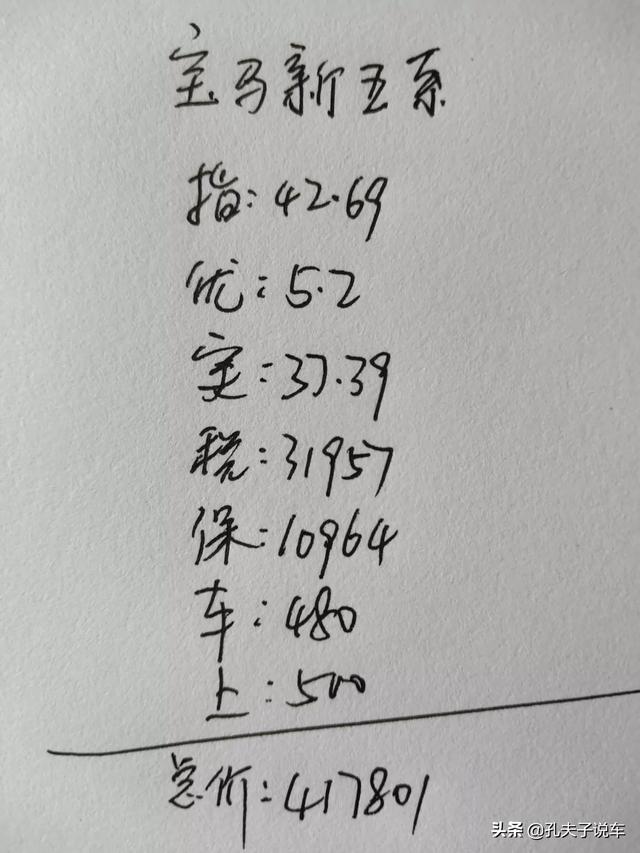 宝马新五系
指:42.69
优:5.2
实:37.39
税:31957
保:10964
车:480
上:500
总价:417801
头条 @孔夫子说车